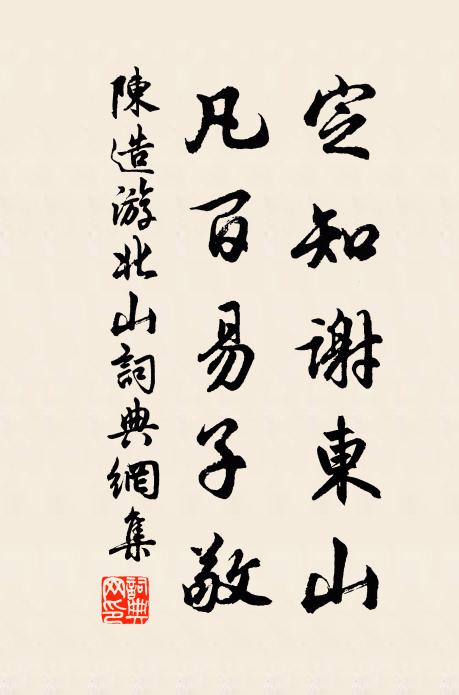 定知謝東山
凡百易子敬
陳造游北山詞典網集
詞典網印